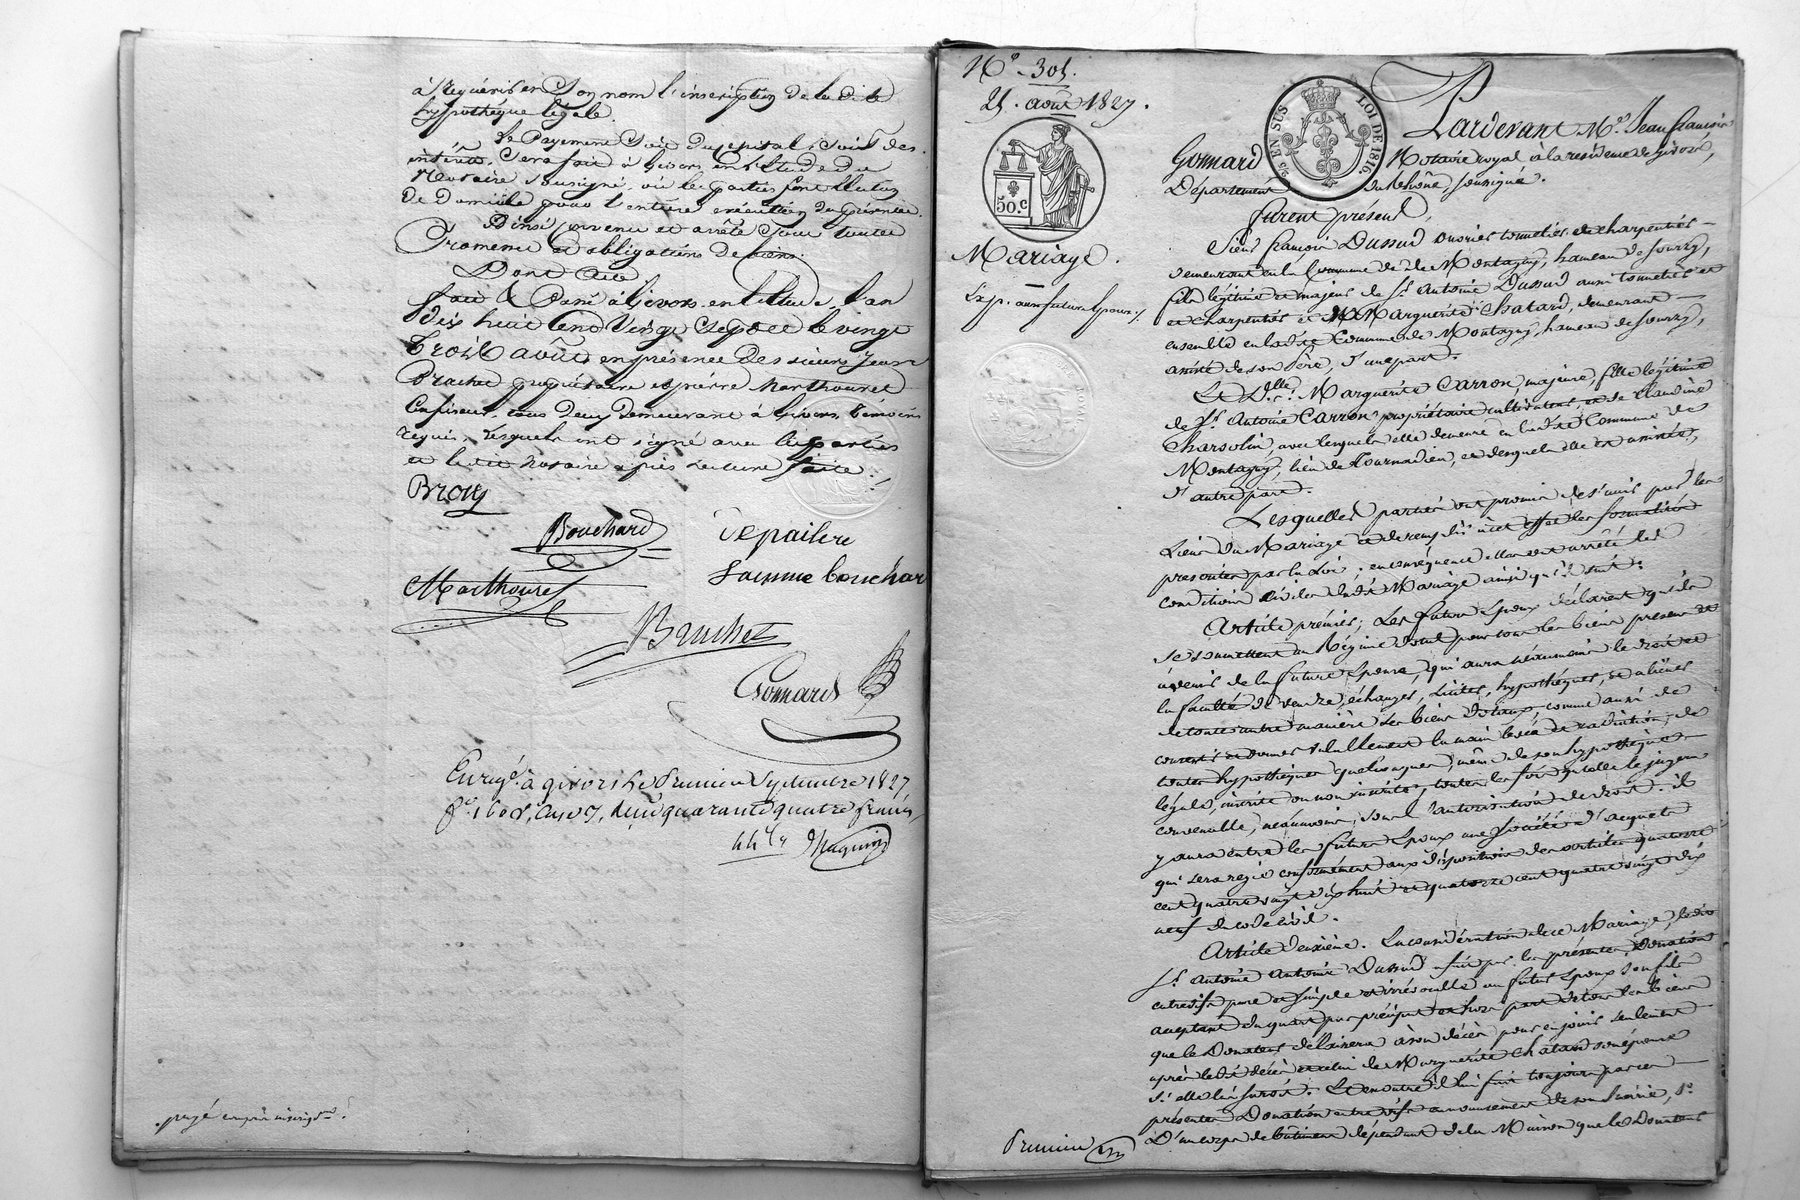 à requérir en son nom l'inscription de la dite
hypothèque légale.
Le Payement soit du capital, soit des
intérêts, sera fait à Givors en l'étude du
Notaire soussigné, où les parties font élection
de Domicile pour l'entière exécution du présent.
Ainsi convenu et arrêté sous toutes
Promesses et obligations de biens.
Dont Acte
fait & Passé à Givors en l'étude l'an
Dix huit cent vingt sept et le vingt
trois août en présence des sieurs Jean
Brachet propriétaire et pierre Marthouret
Confiseur, tous deux demeurant à Givors, témoins
requis, lesquels ont signé avec les parties
et le dit notaire après lecture faite.
Brory
Bouchard
Depaillere
Marthouret
Jacume bouchar
Brachet
Gomard
Enregé. à givors le Premier Septembre 1827
fo. 160 , quarante quatre francs
payé
No. 305.
25. août 1827.
EN SUS
LOI DE 1816
50.c
Mariage.
Exp. aux futurs époux
Pardevant Me. Jean françois
Gomard Notaire royal à la résidence de givors,
Département du Rhône, soussigné.
furent présent,
Sieur françois Dussud ouvrier tonnelier et charpentier
demeurant en la Commune de Montagny, hameau de Sourzy,
fils légitime et majeur de Sr. Antoine Dussud aussi tonnelier et
et charpentier et de Marguerite Chatard, demeurant
ensemble en ladite Commune de Montagny, hameau de Sourzy,
assisté de son Père, d'une part.
Et Dlle. Marguerite Carron, majeure, fille légitime
de Sr. Antoine Carron propriétaire cultivateur, et de Claudine
Charvolin, avec lesquels elle demeure en ladite Commune de
Montagny, lieu de Tournadieu, et desquels elle est assistée,
d'autre part.
Lesquelles parties ont promis de s'unir par les
Liens du Mariage et de remplir à cet effet les formalités
prescrites par la Loi; en conséquence elles ont arrêté les
conditions civiles dudit Mariage ainsi qu'il suit.
Article premier; Les futurs époux déclarent qu'ils
se soumettent au Régime dotal pour tous les biens présens et
à venir de la future épouse, qui aura néanmoins le droit et
la faculté de vendre, échanger, liciter, hypothéquer, et aliéner
de toute autre manière ses biens dotaux, comme aussi de
consentir et donner valablement la main levée et radiation, de
toutes hypothèques quelconques, même de son hypothèque
légale, inscrite ou non inscrite, toutes les fois qu'elle le jugera
convenable, néanmoins, sous l'autorisation de droit. il
y aura entre les futurs époux une société d'acquets
qui sera régie conformément aux dispositions des articles quatorze
cent quatre vingt dix huit et quatorze cent quatre vingt dix
neuf du code civil.
Article deuxième. En considération de ce Mariage, ledit
Sr. Antoine Antoine Dussud fait par les présentes, Donation
entrevifs pure et simple et irrévocable au futur époux son fils
acceptant du quart par préciput et hors part de tous les biens
que le Donateur délaissera à son décès pour en jouir seulement
après ledit décès et celui de Marguerite Chatard son épouse
si elle lui survit. Et encontre il lui fait toujours par ces
présentes Donation entre vifs au
D'un corps de bâtiment dépendant de la Maison que le Donateur
Premier